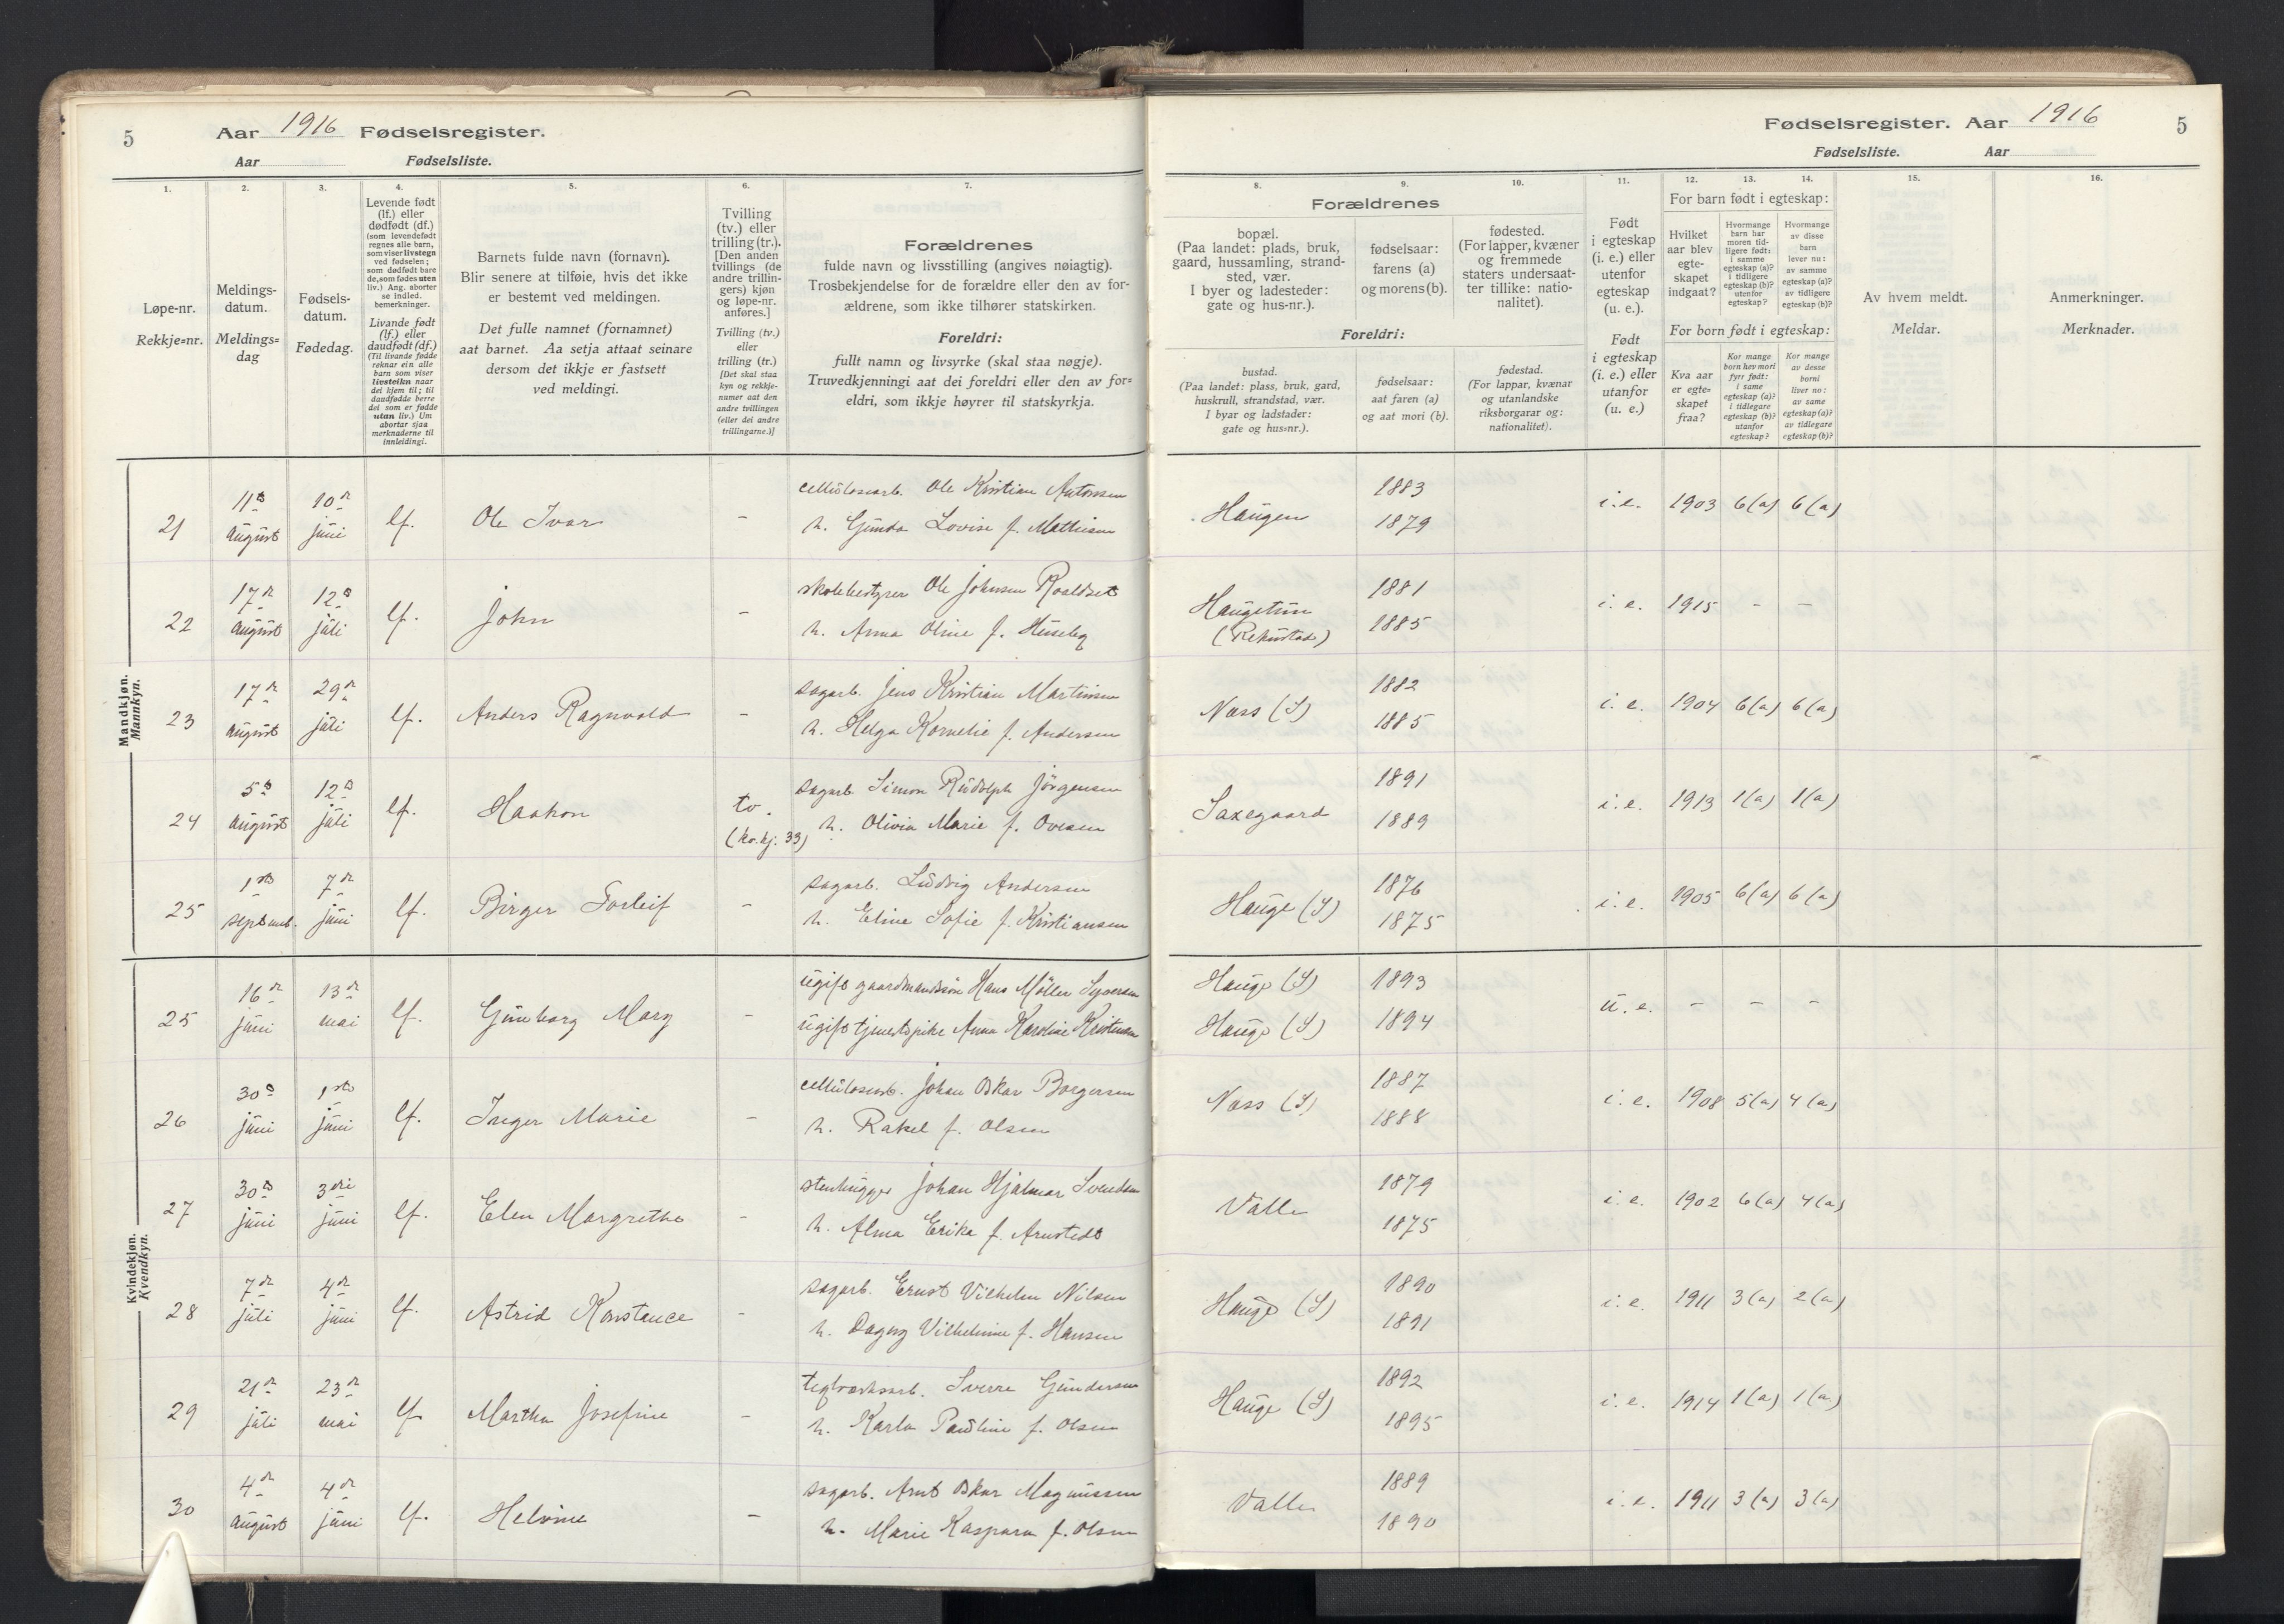 5 Aar 1916 Fødselsregister.
Aar Fødselsliste.
Fødselsregister. Aar 1916 5
Fødselsliste. Aar
1. 2. 3. 4. 5. 6. 7.
Løpe-nr.
Rekkje=nr.
Meldings-
datum.
Meldings=
dag
Fødsels-
datum.
Fødedag.
Levende født
(lf.) eller
dødfødt (df.)
(som levendefødt
regnes alle barn,
som viser livstegn
ved fødselen;
som dødfødt bare
de, som fødes uten
liv.) Ang. aborter
se indled.
bemerkninger.
Livande født
(lf.) eller
daudfødt (df.)
(Til livande fødde
reknar ein alle
barn som viser
livsteikn naar
dei kjem til; til
daudfødde berre
dei som er fødde
utan liv.) Um
abortar sjaa
merknaderne til
innleidingi.
Barnets fulde navn (fornavn).
Blir senere at tilføie, hvis det ikke
er bestemt ved meldingen.
Det fulle namnet (fornamnet)
aat barnet. Aa setja attaat seinare
dersom det ikkje er fastsett
ved meldingi.
Tvilling
(tv.) eller
trilling (tr.).
[Den anden
tvillings (de
andre trillin-
gers) kjøn
og løpe-nr.
anføres.]
Tvilling (tv.)
eller
trilling (tr.)
[Det skal staa
kyn og rekkje-
numer aat den
andre tvillingen
(eller dei andre
trillingarne.)]
Forældrenes
fulde navn og livsstilling (angives nøiagtig).
Trosbekjendelse for de forældre eller den av for-
ældrene, som ikke tilhører statskirken.
Foreldri:
fullt namn og livsyrke (skal staa nøgje).
Truvedkjenningi aat dei foreldri eller den av for=
eldri, som ikkje høyrer til statskyrkja.
8. 9. 10. 11. 12. 13. 14. 15. 16.
Forældrenes
bopæl.
(Paa landet: plads, bruk,
gaard, hussamling, strand-
sted, vær.
I byer og ladesteder:
gate og hus-nr.).
fødselsaar:
farens (a)
og morens (b).
fødested.
(For lapper, kvæner
og fremmede
staters undersaat-
ter tillike: natio-
nalitet).
Foreldri:
bustad.
(Paa landet: plass, bruk, gard,
huskrull, strandstad, vær.
I byar og ladstader:
gate og hus=nr.).
fødselsaar:
aat faren (a)
og aat mori (b).
fødestad.
(For lappar, kvænar
og utanlandske
riksborgarar og:
nationalitet).
Født
i egteskap
(i. e.) eller
utenfor
egteskap
(u. e.).
Født
i egteskap
(i. e.) eller
utanfor
(u. e.)
For barn født i egteskap:
Hvilket
aar blev
egte-
skapet
indgaat?
Hvormange
barn har
moren tid-
ligere født:
i samme
egteskap (a)?
i tidligere
egteskap (b)?
utenfor
egteskap?
Hvormange
av disse
barn
lever nu:
av samme
egteskap (a)?
av tidligere
egteskap (b)?
For born født i egteskap:
Kva aar
er egte=
skapet
fraa?
Kor mange
born hev mori
fyrr født:
i same
egteskap (a)?
i tidlegare
egteskap (b)?
utanfor
egteskap?
Kor mange
av desse
borni
liver no:
av same
egteskap (a)?
av tidlegare
egteskap (b)?
Av hvem meldt.
Meldar.
Anmerkninger.
Merknader.
Mandkjøn.
Mannkyn.
21 11te august 10de juni lf. Ole Ivar – cellulosearb. Ole Kristian Antonsen
h. Gunda Lovise f. Mathisen
Haugen 1883 1879 i. e. 1903 6(a) 6(a)
22 17de august 12te juli lf. John – skolebestyrer Ole Johnsen Roaldset
h. Anna Oline f. Huseby
Haugetun (Rekustad) 1881 1885 i. e. 1915 – –
23 17de august 29de juli lf. Anders Ragnvald – sagarb. Jens Kristian Martinsen
h. Helga Kornelie f. Andersen
Næss (S) 1882 1885 i. e. 1904 6(a) 6(a)
24 5te august 12te juli lf. Haakon tv. (kv.kj. 33) sagarb. Simon Rudolph Jörgensen
h. Olivia Marie f. Ovesen
Saxegaard 1891 1889 i. e. 1913 1(a) 1(a)
25 1ste septemb. 7de juni lf. Birger Torleif – sagarb. Ludvig Andersen
h. Eline Sofie f. Kristiansen
Hauge (S) 1876 1875 i. e. 1905 6(a) 6(a)
Kvindekjøn.
Kvendkyn.
25 16de juni 13de mai lf. Gunborg Mary – ugift gaardmandssön Hans Möller Syversen
ugift tjenestepike Anna Karoline Kristensen
Hauge (S) 1893
Hauge (S) 1894 u. e. – – –
26 30te juni 1ste juni lf. Inger Marie – cellulosearb. Johan Oskar Borgersen
h. Rakel f. Olsen
Næss (S) 1887 1888 i. e. 1908 5(a) 4(a)
27 30te juni 3die juni lf. Elen Margrethe – stenhugger Johan Hjalmar Svendsen
h. Alma Erika f. Arnstedt
Valle 1879 1875 i. e. 1902 6(a) 4(a)
28 7de juli 4de juni lf. Astrid Konstance – sagarb. Ernst Vilhelm Nilsen
h. Dagny Vilhelmine f. Hansen
Hauge (S) 1890 1891 i. e. 1911 3(a) 2(a)
29 21de juli 23de mai lf. Martha Josefine – teglverksarb. Sverre Gundersen
h. Karla Pauline f. Olsen
Hauge (S) 1892 1895 i. e. 1914 1(a) 1(a)
30 4de august 4de juni lf. Helvine – sagarb. Arnt Oskar Magnussen
h. Marie Kaspara f. Olsen
Valle 1889 1890 i. e. 1911 3(a) 3(a)